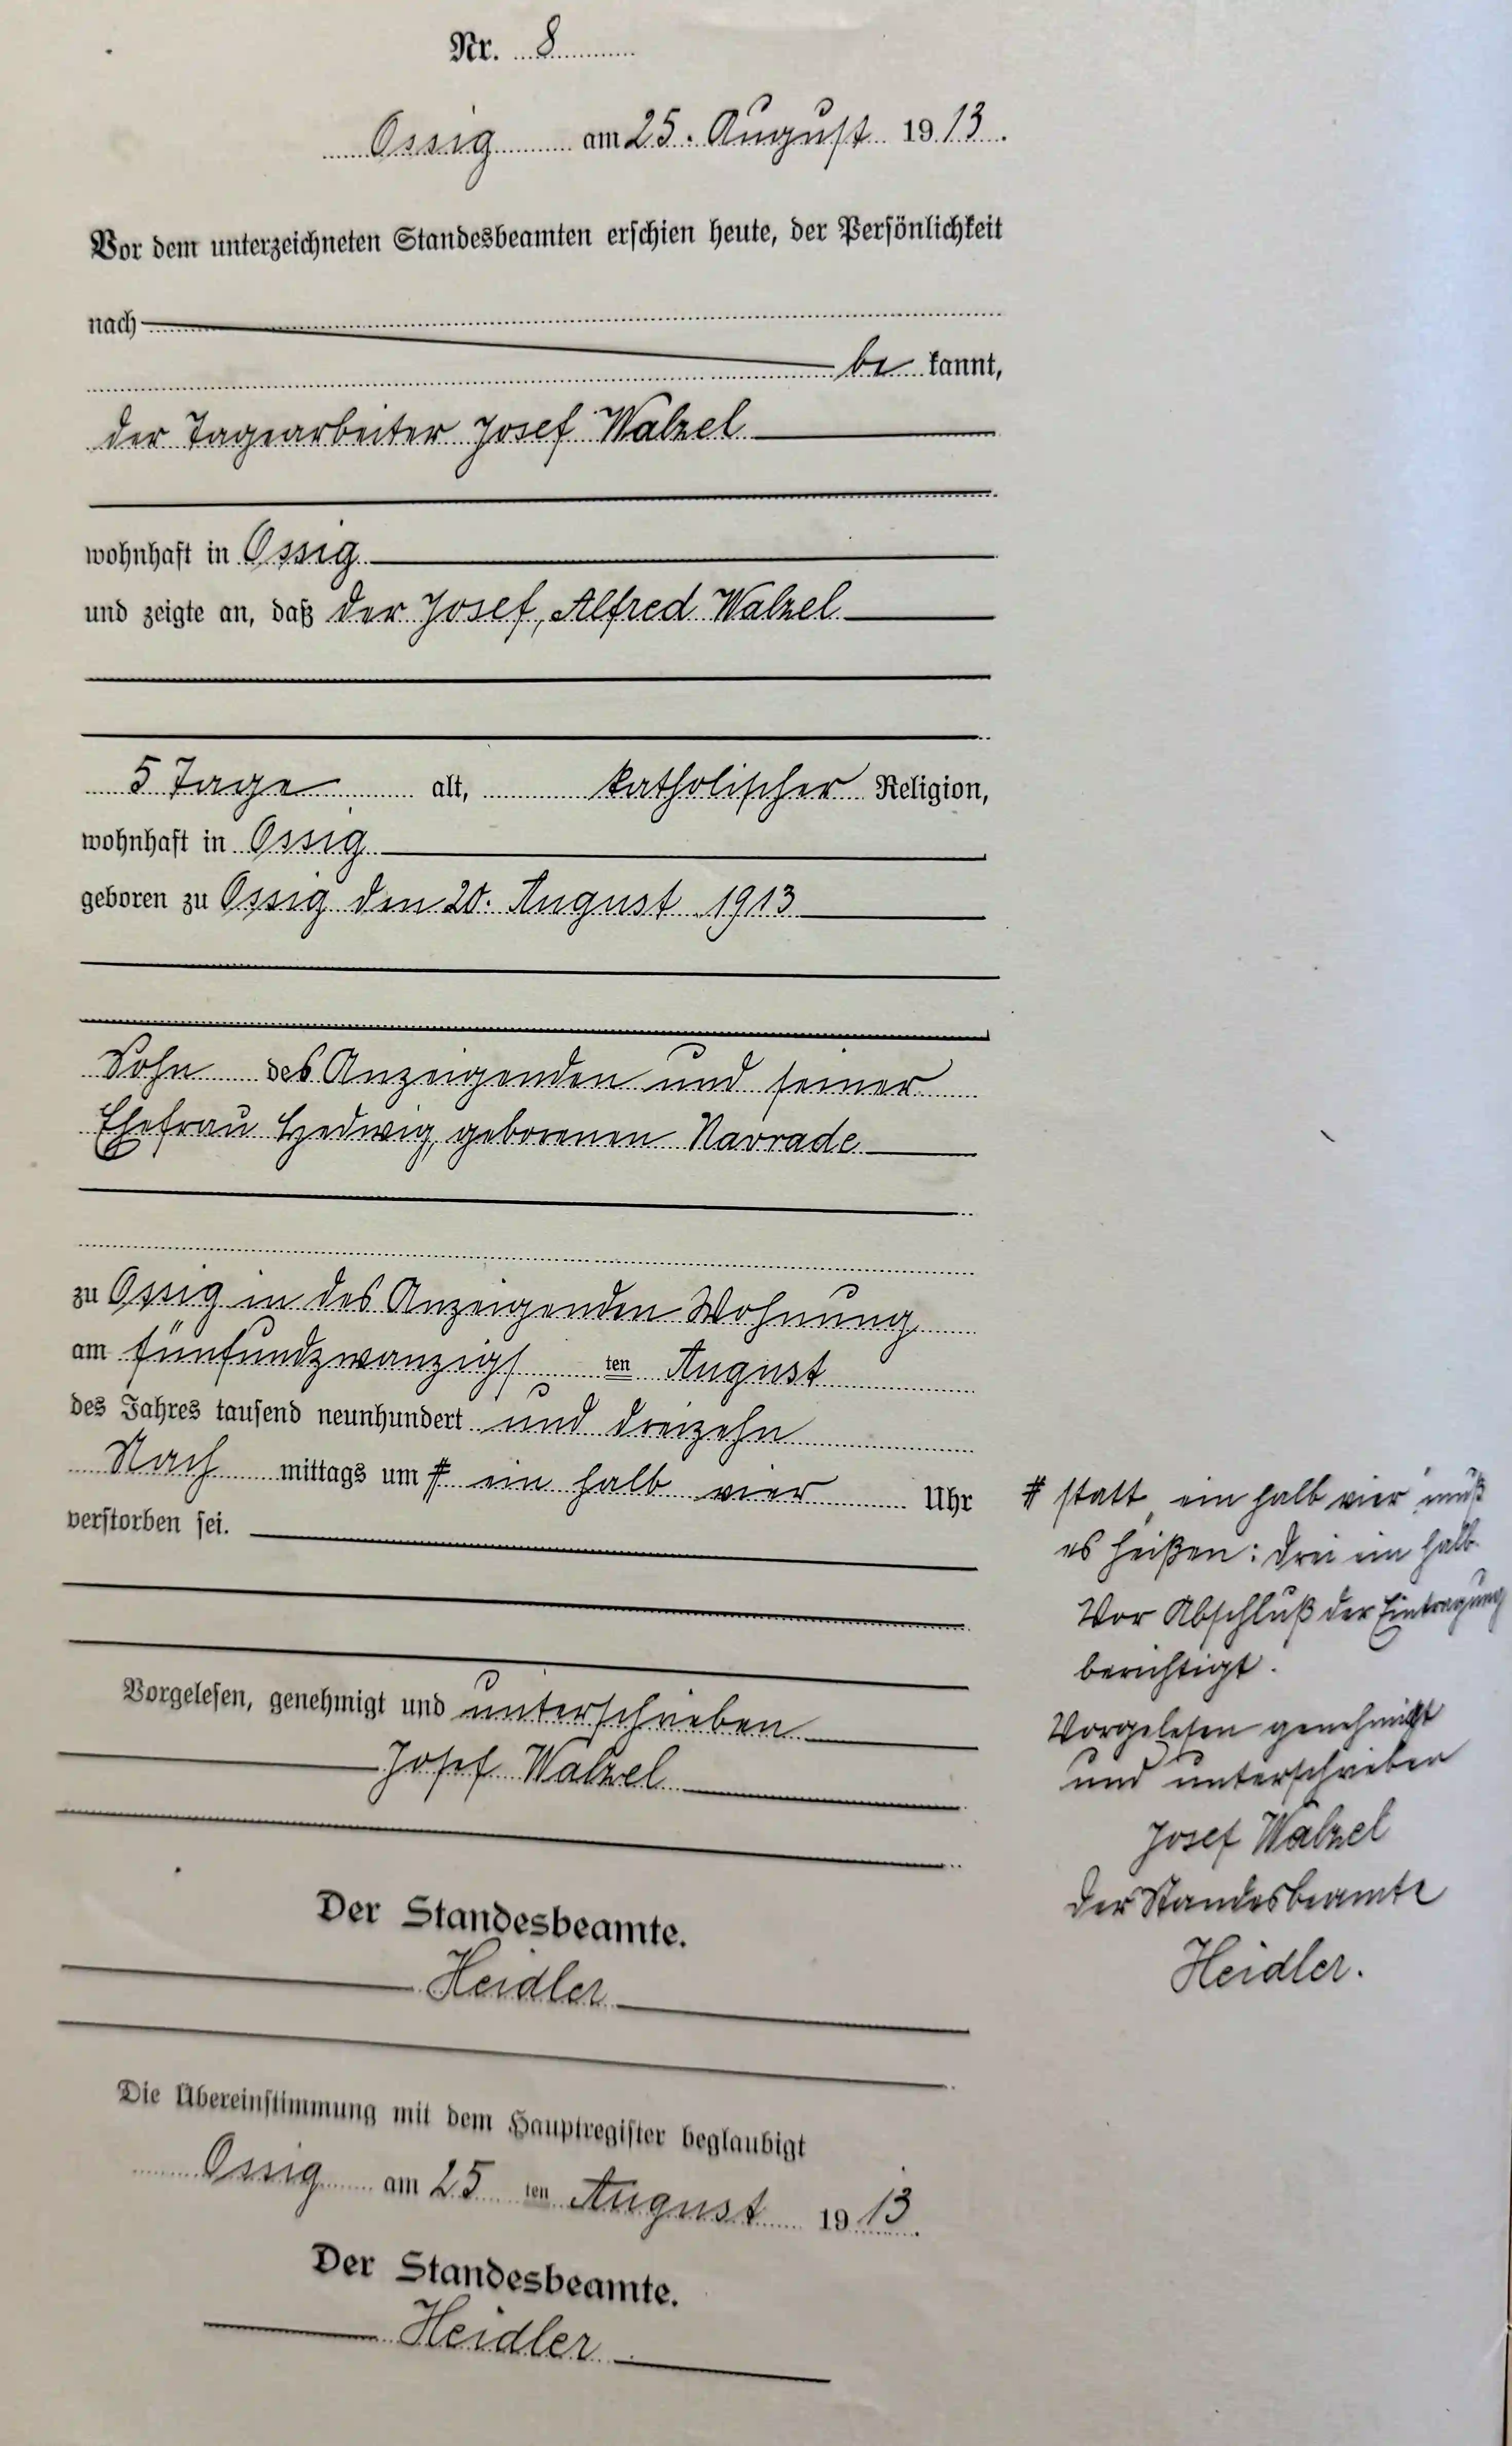 Nr. 8
Ossig am 25. August 1913.
Vor dem unterzeichneten Standesbeamten erschien heute, der Persönlichkeit
nach
be kannt,
der Tagearbeiter Josef Walzel
wohnhaft in Ossig
und zeigte an, daß der Josef, Alfred Walzel
5 Tage alt, katholischer Religion,
wohnhaft in Ossig
geboren zu Ossig den 20. August 1913
Sohn des Anzeigenden und seiner
Ehefrau Hedwig, geborenen Navrade
zu Ossig in des Anzeigenden Wohnung
am fünfundzwanzigsten August
des Jahres tausend neunhundert und dreizehn
Nach mittags um # ein halb vier Uhr
verstorben sei.
# statt „ein halb vier" muß
es heißen: drei ein halb.
Vor Abschluß der Eintragung
berichtigt.
Vorgelesen, genehmigt und unterschrieben
Josef Walzel
Vorgelesen genehmigt
und unterschrieben
Josef Walzel
Der Standesbeamte
Heidler.
Der Standesbeamte.
Heidler
Die Übereinstimmung mit dem Hauptregister beglaubigt
Ossig am 25 ten August 1913.
Der Standesbeamte.
Heidler